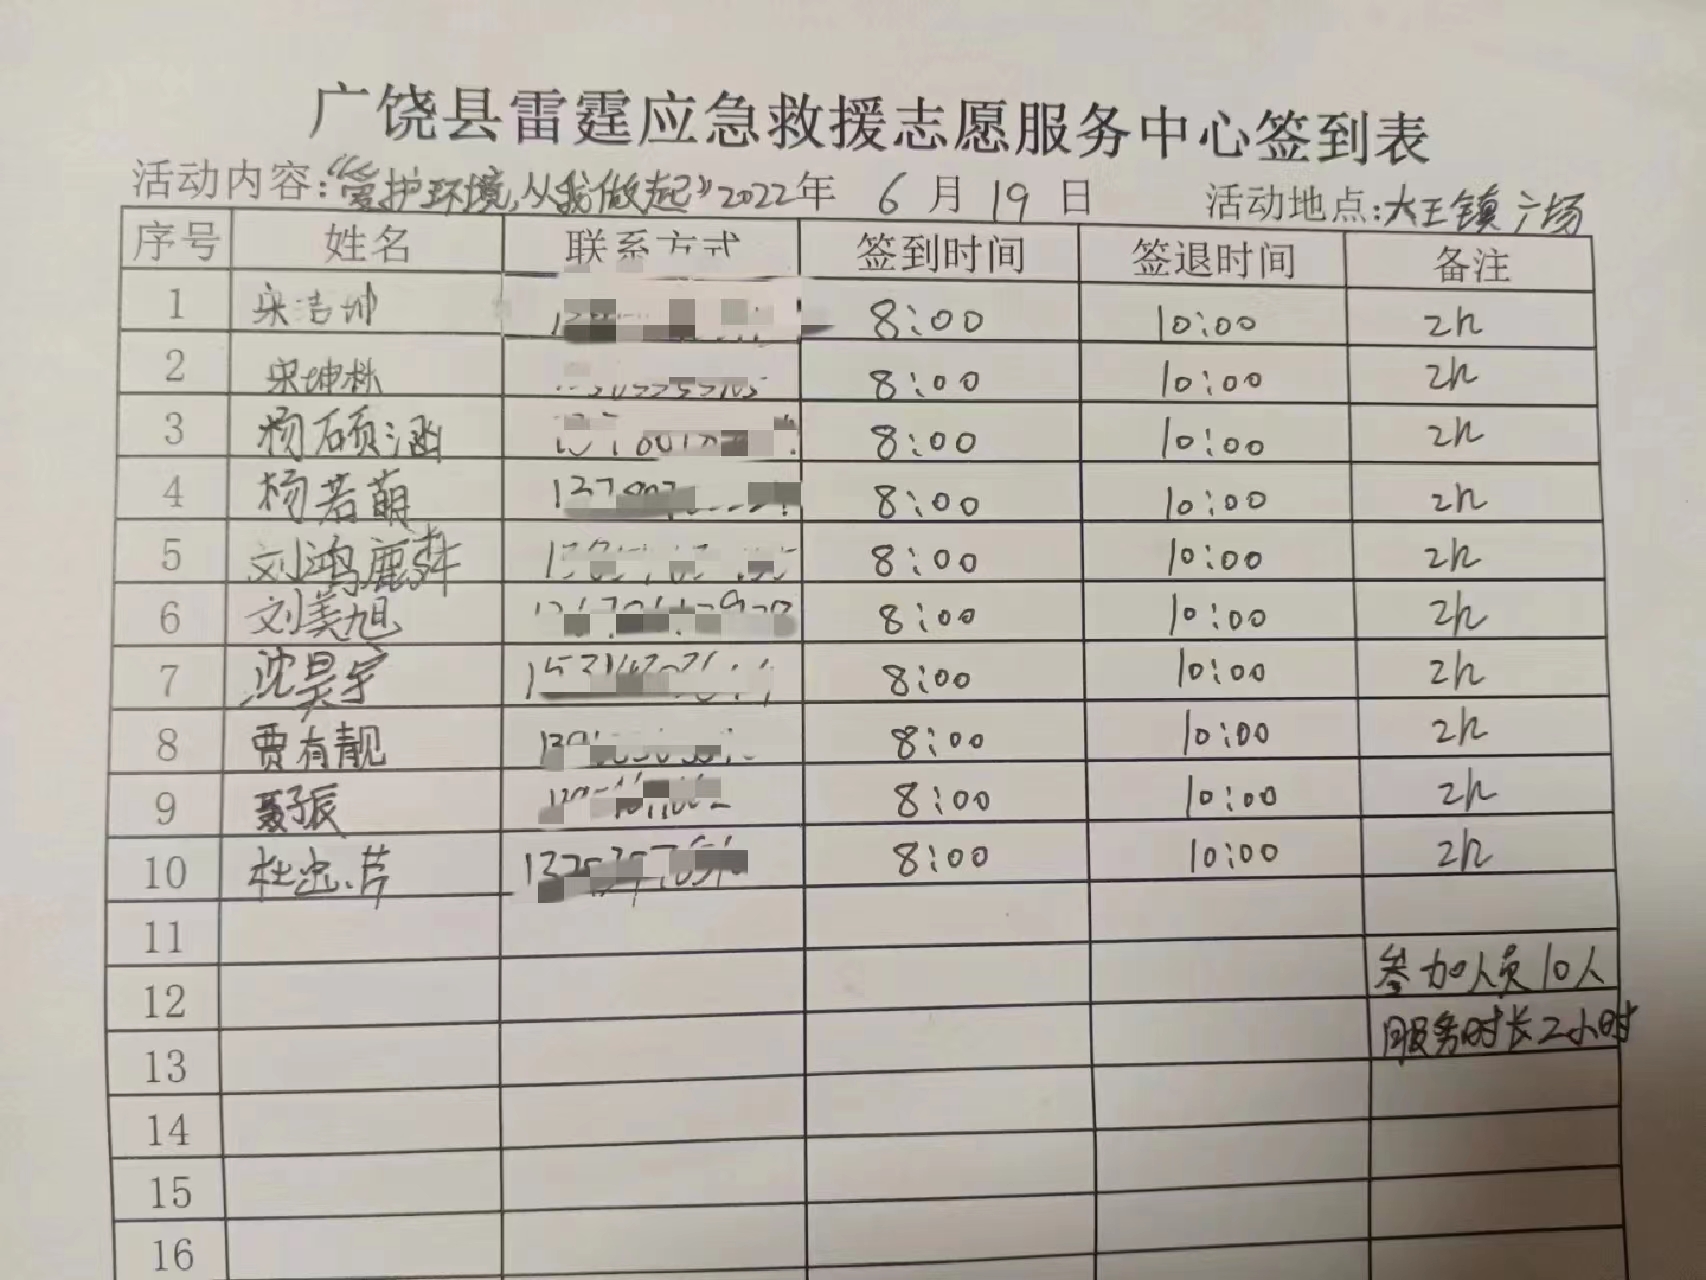 广饶县雷霆应急救援志愿服务中心签到表
活动内容:“爱护环境,从我做起”2022年 6 月 19 日 活动地点:大王镇广场
序号 姓名 联系方式 签到时间 签退时间 备注
1 宋洁坤 8:00 10:00 2h
2 宋坤林 8:00 10:00 2h
3 杨硕涵 8:00 10:00 2h
4 杨若萌 8:00 10:00 2h
5 刘鸿麟 8:00 10:00 2h
6 刘美旭 8:00 10:00 2h
7 沈昊宇 8:00 10:00 2h
8 贾有靓 8:00 10:00 2h
9 聂子辰 8:00 10:00 2h
10 8:00 10:00 2h
11
12 参加人员10人
13 服务时长2小时
14
15
16